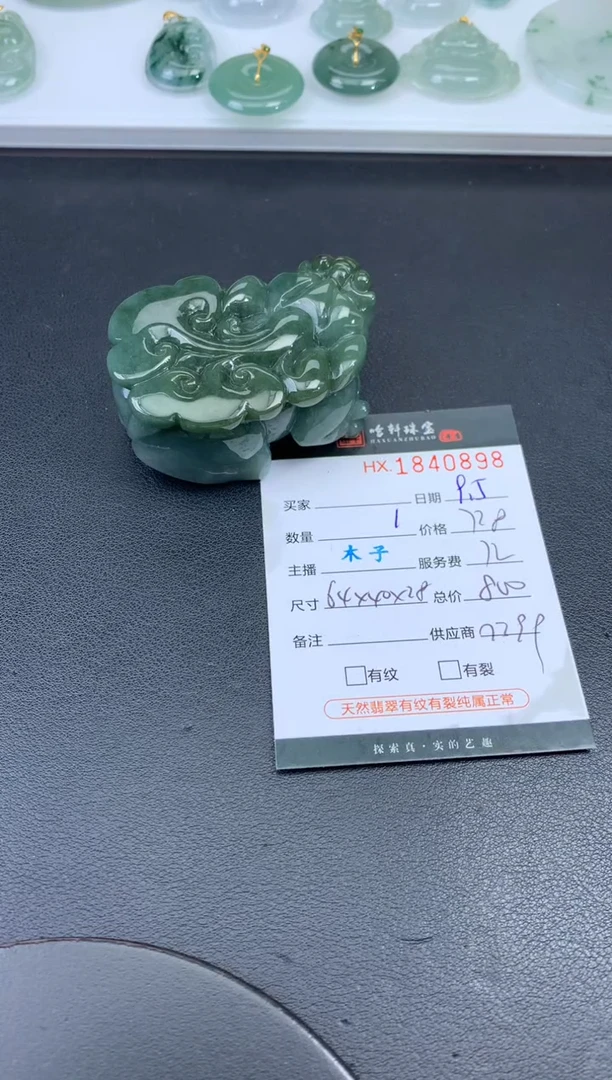 哈轩珠宝
HAXUANZHUBAO
HX.1840898
买家 日期 9.5
数量 1 价格 728
主播 木子 服务费 72
尺寸 64x40x28 总价 800
备注 供应商
有纹 有裂
天然翡翠有纹有裂纯属正常
探索真·实的艺趣